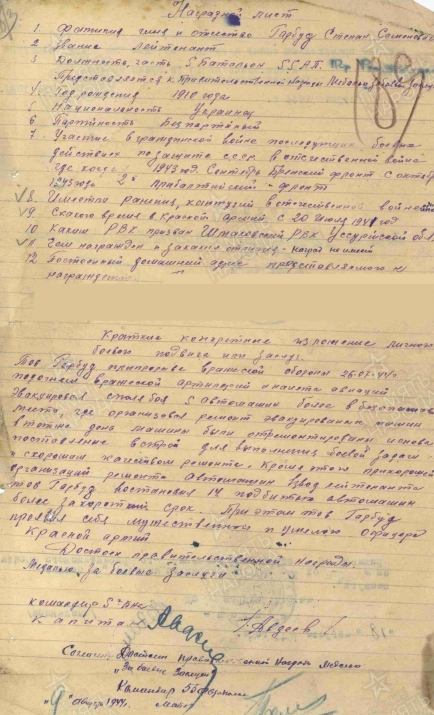 Наградной лист
1. Фамилия имя и отчество Гарбуд Степан Семенович
2. Звание лейтенант
3. Должность, часть 5 Батальон 5 С.А.П.
Представляется к Правительственной Награде Медалью За боевые Заслуги
4. Год рождения 1910 года
5. Национальность Украинец
6. Партийность Беспартийный
7. Участие в гражданской войне последующих боевых
действиях по защите СССР в отечественной войне
где когда 1943 год. Сентябрь Брянский фронт С октября
1943 года 2й Прибалтийский - фронт
8. Имеет ли ранения, контузий в отечественной войне
9. С какого время в Красной армий С 20 Июля 1941 год
10. Каким РВК призван РВК Уссурийской обл.
11. Чем награжден и за какие отличия - наград не имеет
12. Постоянный домашний адрес представляемого к
награждению
Краткие конкретные изложение личного
боевого подвига или заслуг.
Тов Гарбуд при прорыве вражеской обороны 26.07.44г
под огнем вражеской артилерий и налета авиаций
Эвакуировал с поля боя 5 автомашин более в безопасное
место, где организовал ремонт эвакуированных машин
в тот же день машины были отремонтированы и снова
поставление в строй для выполнения боевой задачи
с хорошим качеством ремонта. Кроме этого при хорошей
организаций ремонта автомашин взвод лейтенанта
тов Гарбуд Востановил 14 подбитых автомашин
более за короткий срок. При этом тов Гарбуд
проявил себя мужественным и умелого Офицера
Красной армий
Достоин правительственной награды
Медалью За боевые Заслуги
командир 5го Б-на
Капитан /Авдеев/
Согласен. Достоин правительственной Награды Медали
"За боевые Заслуги"
Командир
"9" августа 1944г. Майор